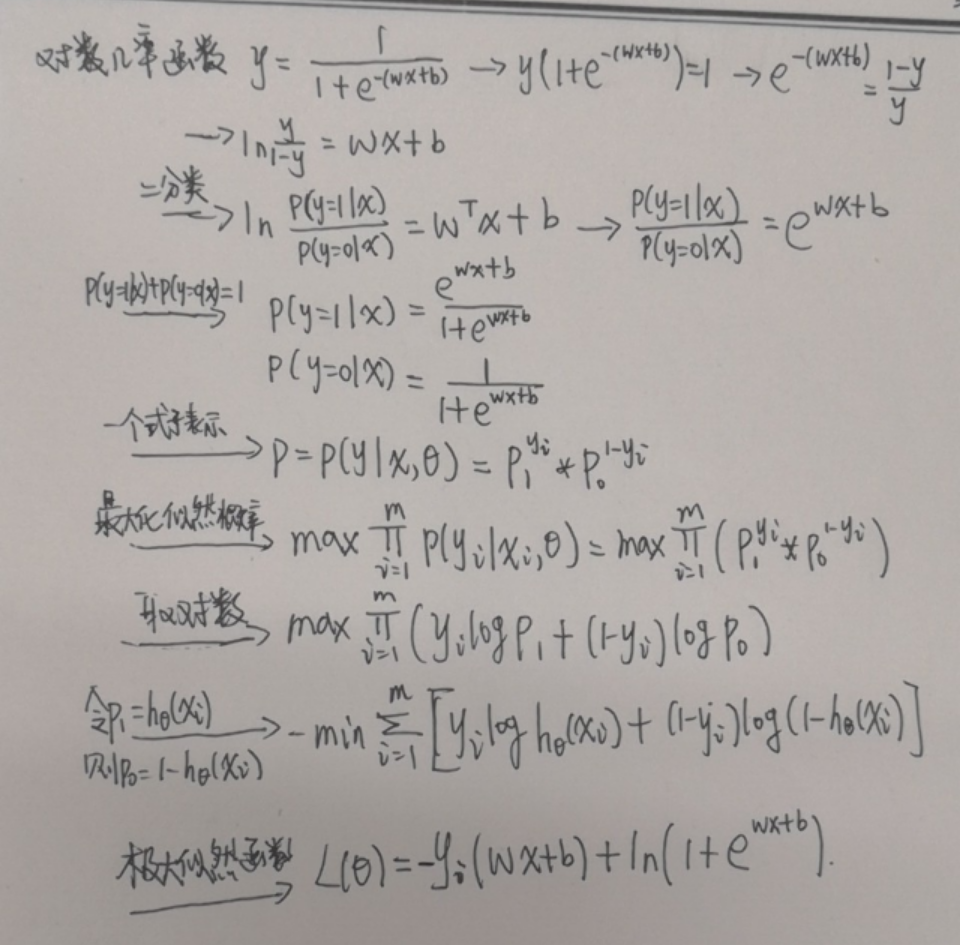 对数几率函数 y = 1/(1+e^{-(wx+b)}) → y(1+e^{-(wx+b)})=1 → e^{-(wx+b)} = (1-y)/y
→ ln y/(1-y) = wx+b
二分类 → ln P(y=1|x)/P(y=0|x) = w^T x + b → P(y=1|x)/P(y=0|x) = e^{wx+b}
P(y=1|x)+P(y=0|x)=1 → P(y=1|x) = e^{wx+b}/(1+e^{wx+b})
P(y=0|x) = 1/(1+e^{wx+b})
一个式子表示 → P = P(y|x,θ) = P₁^{y_i} * P₀^{1-y_i}
最大化似然概率 → max ∏_{i=1}^{m} P(y_i|x_i,θ) = max ∏_{i=1}^{m} (P₁^{y_i} * P₀^{1-y_i})
取对数 → max ∏_{i=1}^{m} (y_i log P₁ + (1-y_i) log P₀)
令p₁=h_θ(x_i) → -min ∑_{i=1}^{m} [y_i log h_θ(x_i) + (1-y_i) log(1-h_θ(x_i)]
则p₀=1-h_θ(x_i)
极大似然函数 → L(θ) = -y_i(wx+b) + ln(1+e^{wx+b}).